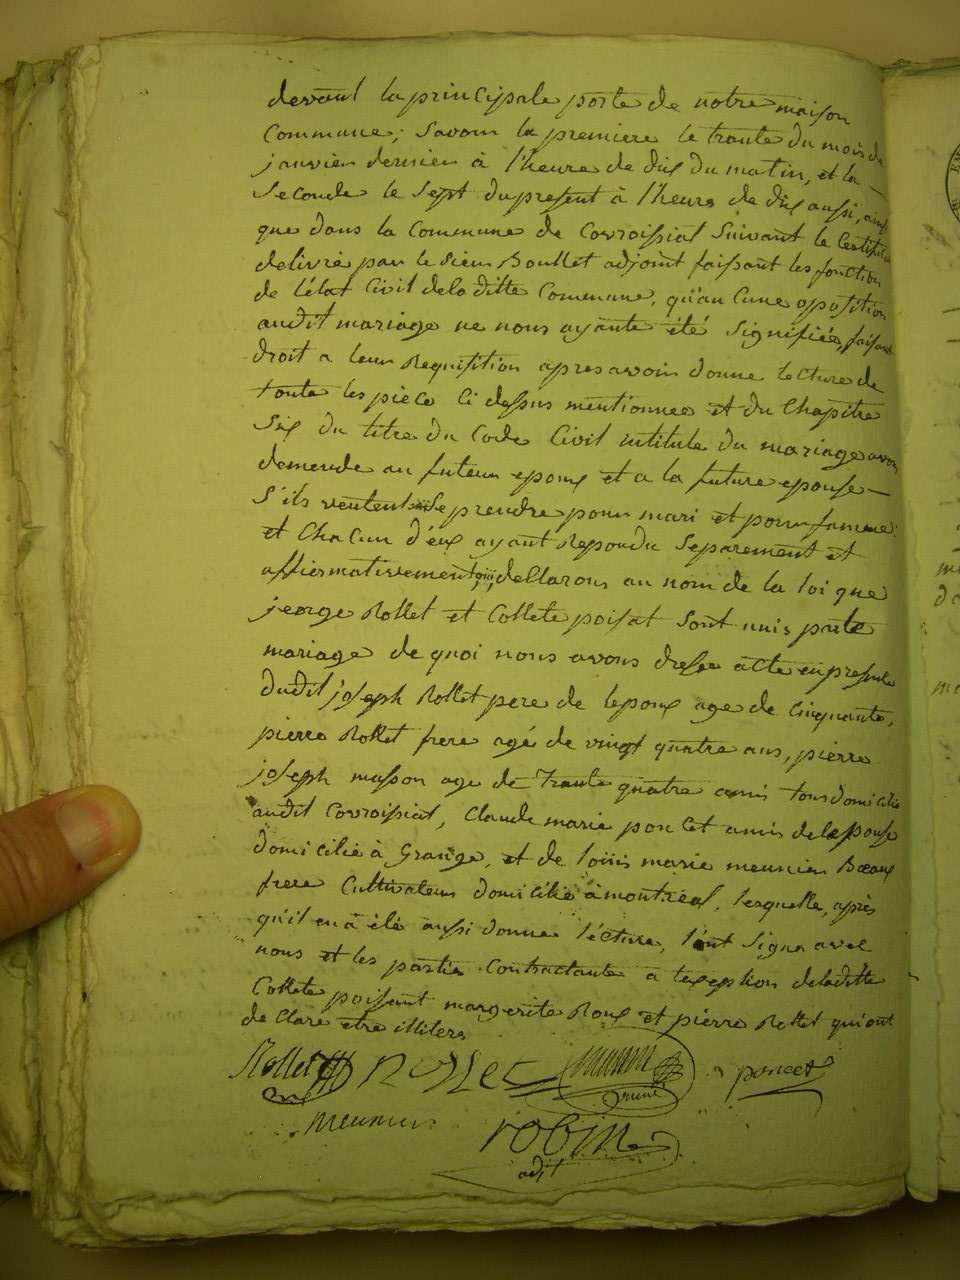 devant la principale porte de notre maison
Commune; Savoir la premiere le trante du mois de
janvier dernier à l'heure de dix du matin, et la
Seconde le Sept du present à l'heure de dix aussi, ainsi
que dans la Commune de Corroissiat Suivant le Certificat
delivré par le Sieur Boullet adjoint faisant les fonction
de l'état Civil de la ditte Commune, qu'au Cune oposition
audit mariage ne nous ayante été Signifiée, faisant
droit a leur Requisition apres avoir donne lecture de
toute les piece Ci dessus mentionnee et du Chapitre
Six du titre du Code Civil intitule du mariage avons
demende au futeur epoux et a la future epouse
S'ils veulent Se prendre pour mari et pour famme:
et Chacun d'eux ayant Repondu Separement et
affirmativement, declarons au nom de la loi que
jeorge Rollet et Collete poisat Sont unis par le
mariage de quoi nous avons dresse acte en presence
dudit joseph Rollet pere de lepoux age de Cinquante,
pierre Rollet frere agé de vingt quatre ans, pierre
joseph masson age de trante quatre amis tous domicilie
audit Corroissiat, Claude marie poncet amis de lepouse
domicilié à Grange, et de loüis marie meunier Beaux
frere Cultivateur domicilié à montreal, lesquelle, après
qu'il en à été aussi donne lécture, l'ont Signe avec
nous et les partie Contractante a lexeption de la ditte
Collete poisant margerite Roux et pierre Rollet qui ont
de Clare etre illitere
Rollet Rollet poncet
meunier robin
adjt